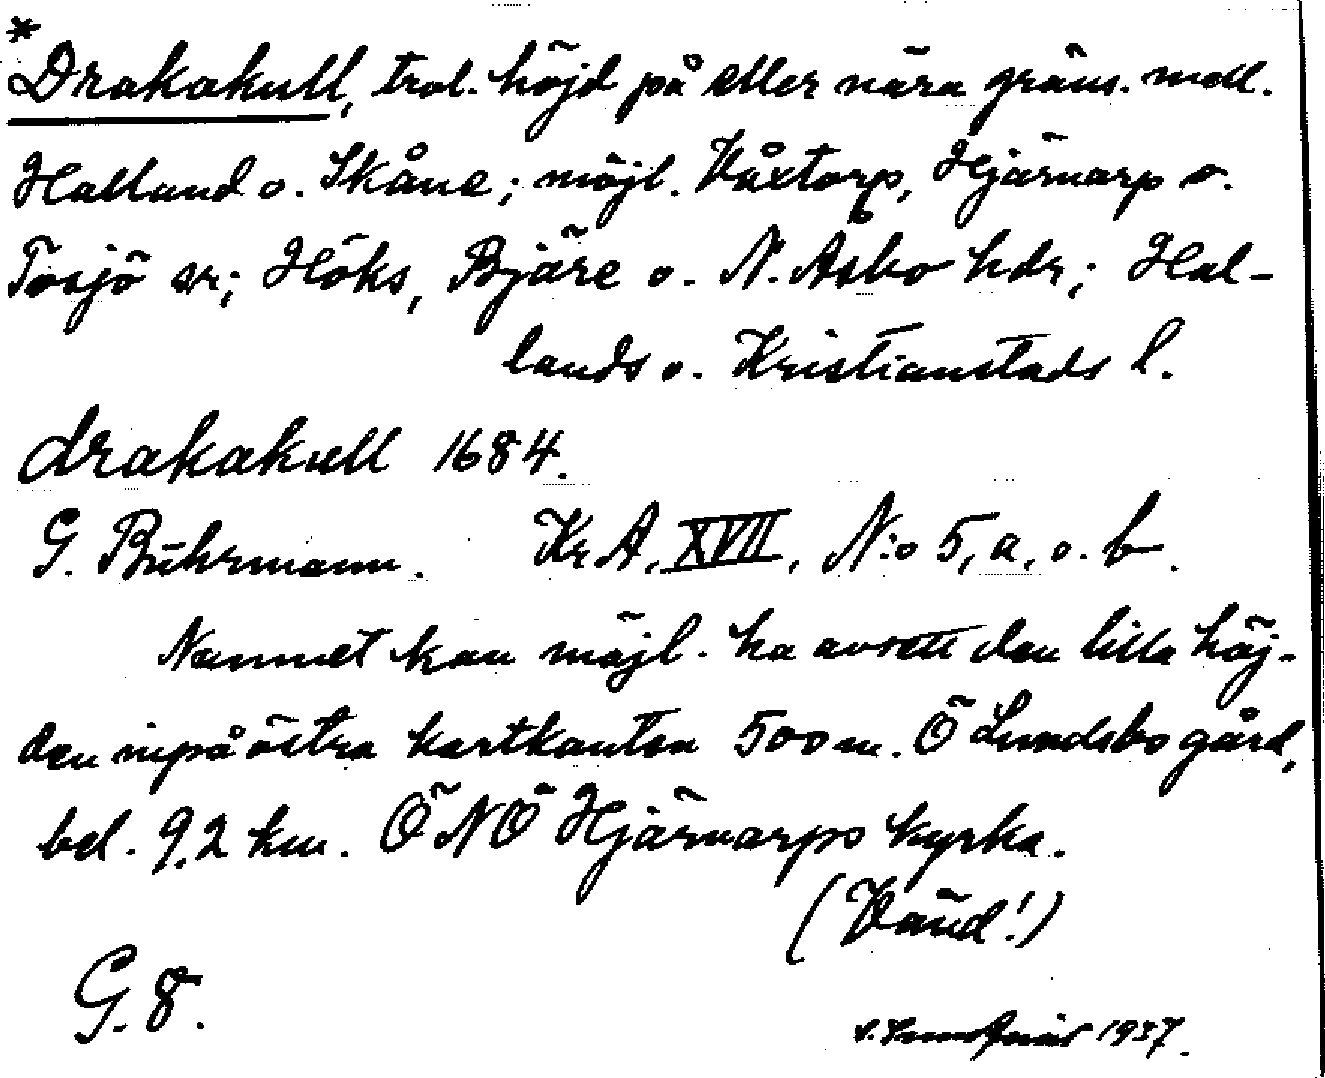 *Drakakull, trol. höjd på eller nära gräns. mell.
Halland o. Skåne; möjl. Våxtorp, Hjärnarp o.
Tosjö snr; Höks, Bjäre o. N. Åsbo hdr; Hal-
lands o. Kristianstads l.
drakakull 1684.
G. Buhrmann. Kr A, XVII, N:o 5, a. o. b.
Namnet kan möjl. ha avsett den lilla höj-
den inpå östra kartkanten 500 m. Ö Lundsbo gård,
bel. 9,2 km. ÖNÖ Hjärnarps kyrka.
(Vänd!)
G. 8.
1937.